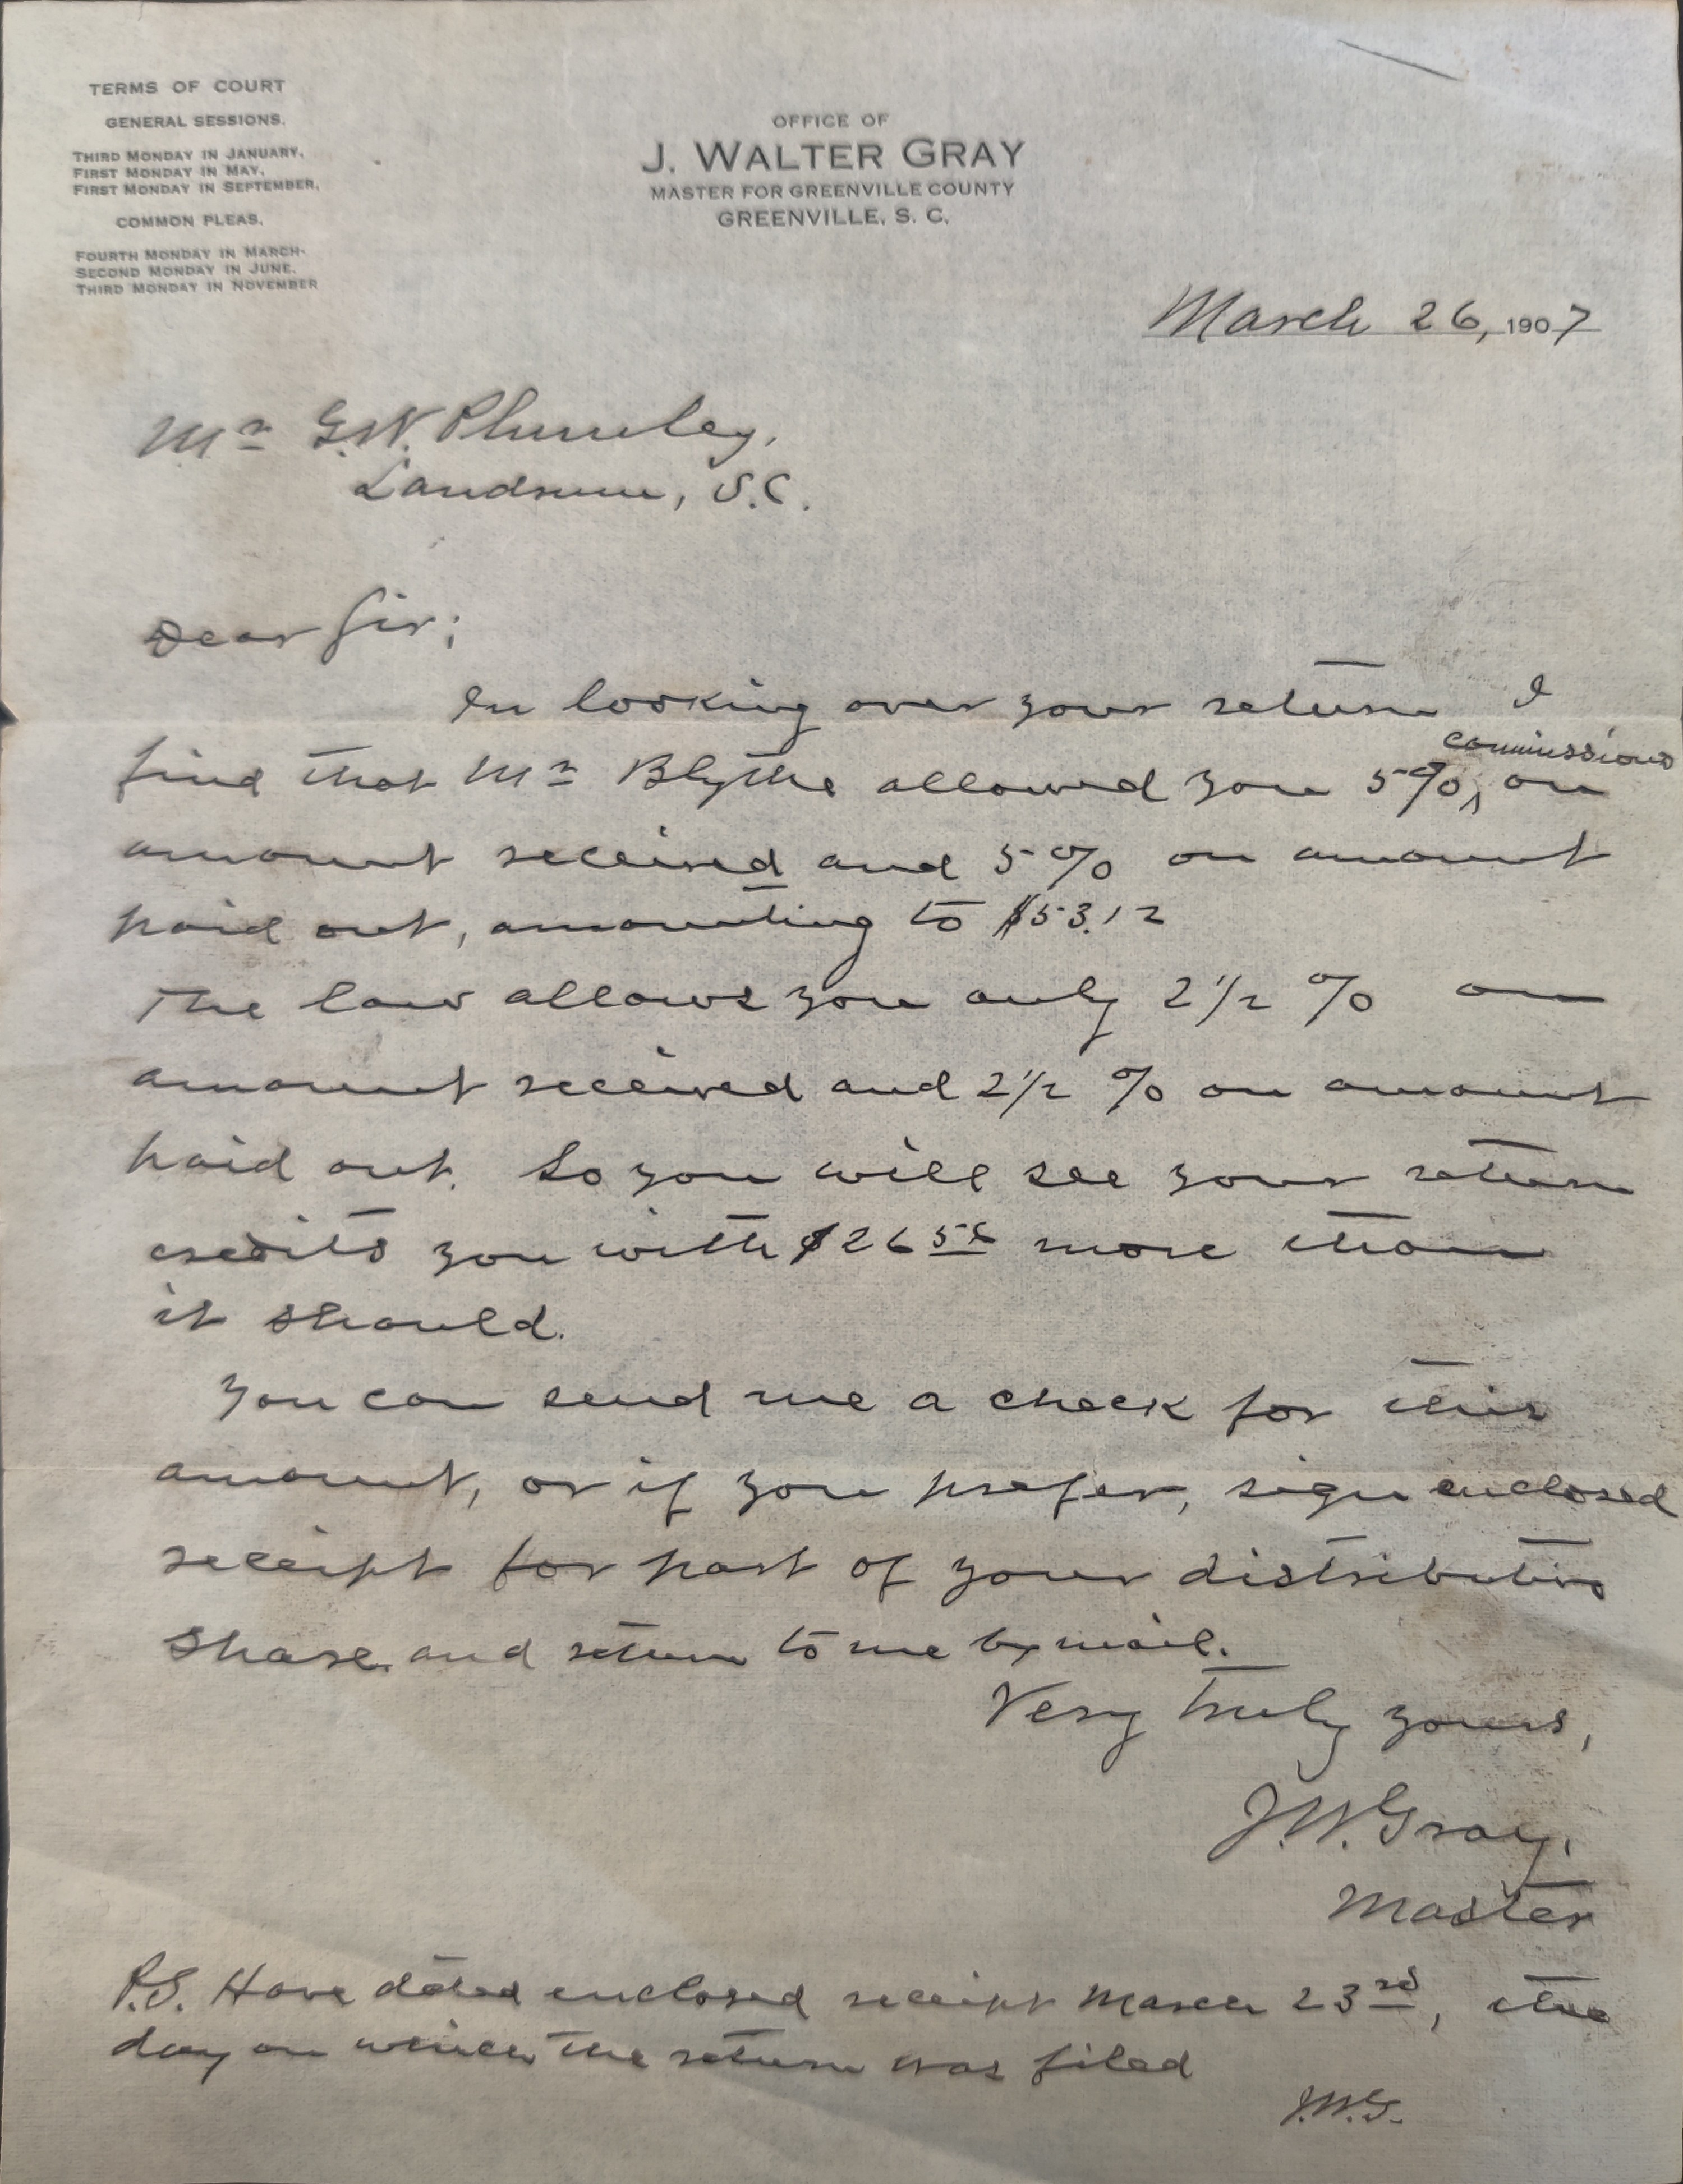 TERMS OF COURT
GENERAL SESSIONS.
THIRD MONDAY IN JANUARY,
FIRST MONDAY IN MAY,
FIRST MONDAY IN SEPTEMBER,
COMMON PLEAS.
FOURTH MONDAY IN MARCH.
SECOND MONDAY IN JUNE.
THIRD MONDAY IN NOVEMBER
OFFICE OF
J. WALTER GRAY
MASTER FOR GREENVILLE COUNTY
GREENVILLE, S. C.
March 26, 1907
Mr G.W. Plumley,
Landrum, S.C.
Dear Sir;
In looking over your return I
find that Mr Blythe allowed you 5% commissions on
amount received and 5% on amount
paid out, amounting to $53.12
The law allows you only 2 1/2 % on
amount received and 2 1/2 % on amount
paid out. So you will see your return
credits you with $26 56 more than
it should.
You can send me a check for this
amount, or if you prefer, sign enclosed
receipt for part of your distributive
share and return to me by mail.
Very truly yours,
J.W. Gray,
Master
P.S. Have dated enclosed receipt March 23rd, the
day on which the return was filed
J.W.G.